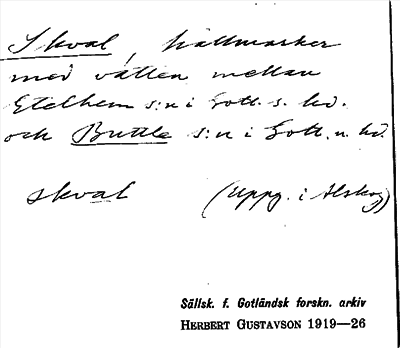 Skval, hällmarker
med vatten mellan
Etelhem s:n i Gotl. s. hd.
och Buttle s:n i Gotl. n. hd.
skval (Uppg. i Alskog)
Sällsk. f. Gotländsk forskn. arkiv
HERBERT GUSTAVSON 1919—26